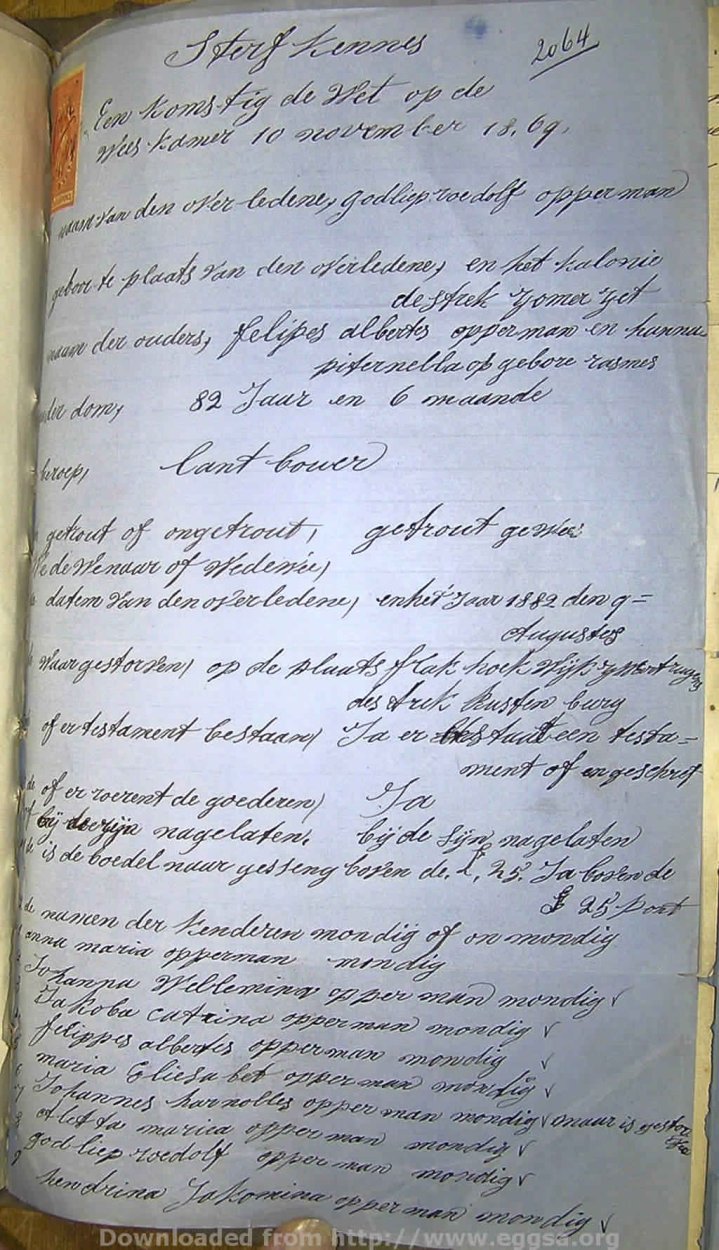 Sterf kennes
2064
Een koms-tig de Wet op de
Wees-kamer 10 november 18.69.
naam van den over ledene, godliep roedolf opperman
geboor-te plaats van den overledene, en het kalonie
destrek zomer zet
naam der ouders, felipes albertes opperman en hanna
piternella op gebore rasmes
der dom, 82 Jaar en 6 maande
beroep, lant bouer
getrout of ongetrout, getrout gewee
de Wenaar of Wedewee,
datem van den overledene, en het Jaar 1882 den 9=
Augustes
Waar gestorven, op de plaats flak hoek Wijk
destrek Rusten burg
of er testament bestaan, Ja er een testa-
ment of en geschref
de of er roerent de goederen, Ja
bij de zijn nagelaten. bij de sijn nagelaten
is de boedel naar gesseng boven de. £, 25. Ja boven de
£ 25 pont
de namen der kenderen mondig of on mondig
anna maria opperman mondig
Johanna Wellemina opperman mondig √
Jakoba catrina opperman mondig √
felippes albertes opperman mondig √
maria Eliesa bet opperman mondig √
Johannes harnolles opperman mondig √ maar is gestor
aletta mariea opperman mondig √
godliep roedolf opperman mondig √
hendrina Jakomina opperman mondig √
Downloaded from http://www.eggsa.org